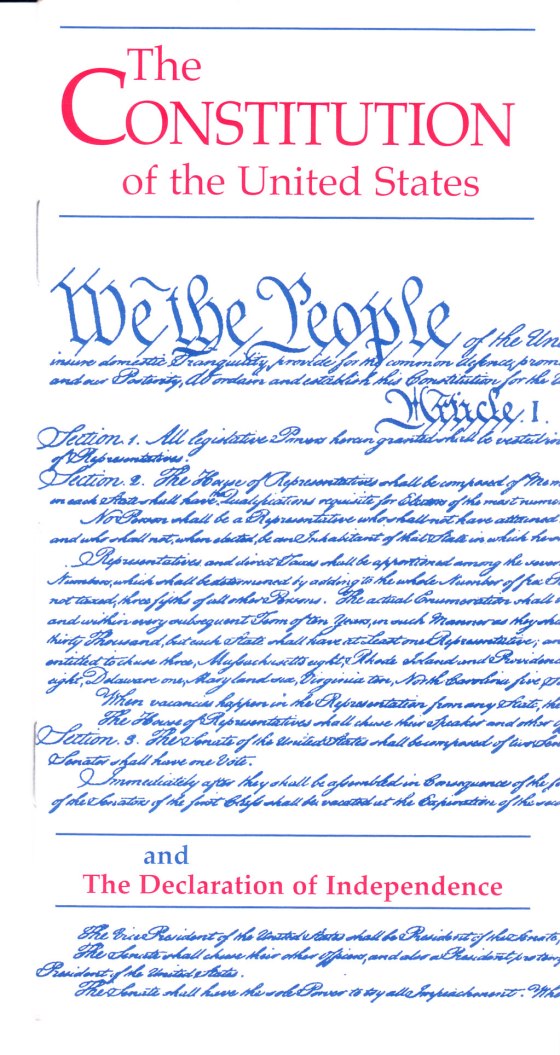 The
CONSTITUTION
of the United States
We the People of the Uni
insure domestic Tranquility, provide for the common defence, prom
and our Posterity, do ordain and establish this Constitution for the U
Article. I.
Section. 1. All legislative Powers herein granted shall be vested in a
of Representatives.
Section. 2. The House of Representatives shall be composed of Mem
in each State shall have the Qualifications requisite for Electors of the most nume
No Person shall be a Representative who shall not have attained
and who shall not, when elected, be an Inhabitant of that State in which he s
Representatives and direct Taxes shall be apportioned among the seve
Numbers, which shall be determined by adding to the whole Number of free
not taxed, three fifths of all other Persons. The actual Enumeration shall
and within every subsequent Term of ten Years, in such Manner as they sha
thirty Thousand, but each State shall have at Least one Representative; an
entitled to chuse three, Massachusetts eight, Rhode Island and Providen
eight, Delaware one, Maryland six, Virginia ten, North Carolina five
When vacancies happen in the Representation from any State, the
The House of Representatives shall chuse their Speaker and other
Section. 3. The Senate of the United States shall be composed of two Sen
Senator shall have one Vote.
Immediately after they shall be assembled in Consequence of the f
of the Senators of the first Class shall be vacated at the Expiration of the sec
and
The Declaration of Independence
The Vice President of the United States shall be President of the Senate,
The Senate shall chuse their other Officers, and also a President pro tem
President of the United States.
The Senate shall have the sole Power to try all Impeachments. Whe